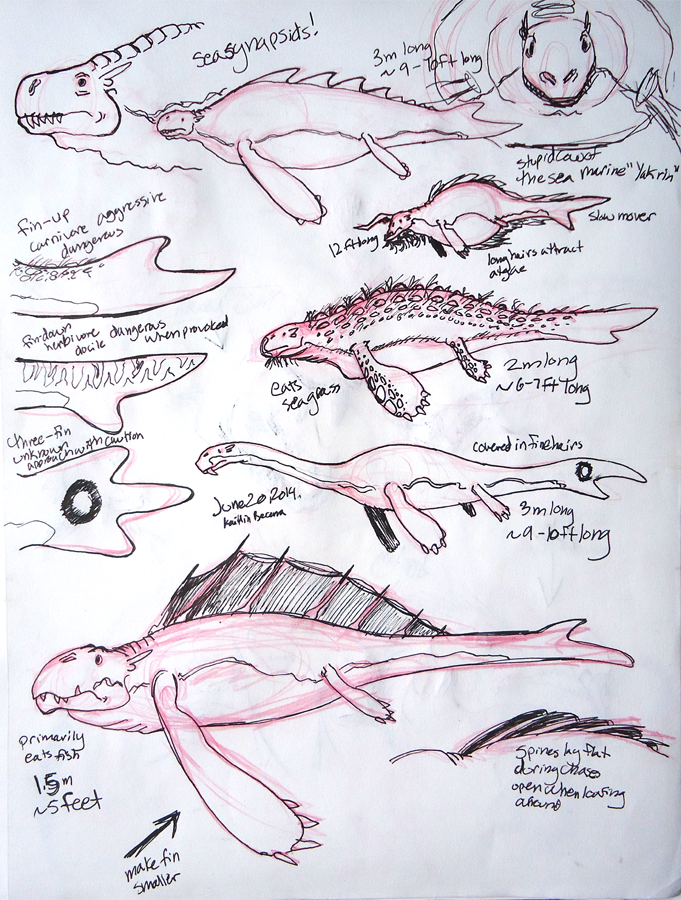 seasynapsids!
3m long
~9-10ft long
stupid cow of
the sea marine "Yakrin"
fin-up
carnivore aggressive
dangerous
12ft long
slow mover
long hairs attract
algae
fin-down
herbivore dangerous
docile when provoked
eats
seagrass
2m long
~6-7ft long
three-fin
unknown
approach with caution
June 20 2014.
Kaitlin
covered in fine hairs
3m long
~9-10ft long
primarily
eats fish
1.5m
~5feet
make fin
smaller
spines lay flat
during chase
open when loafing
around